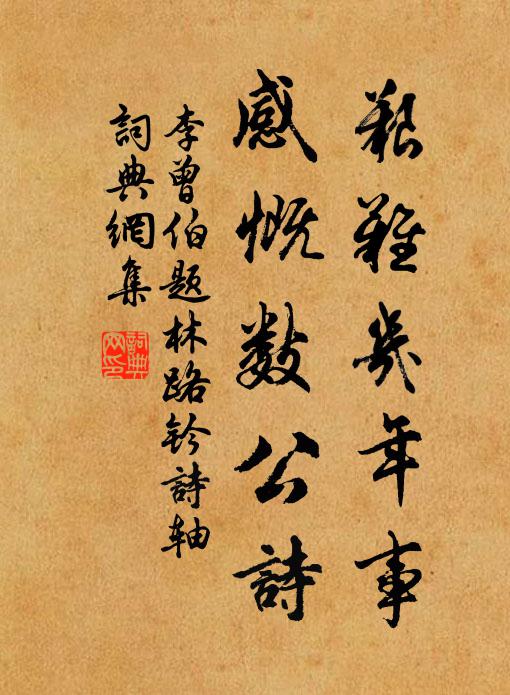 艱難幾年事
感慨數公詩
李曾伯題林路鈐詩軸
詞典網集
詞典網印